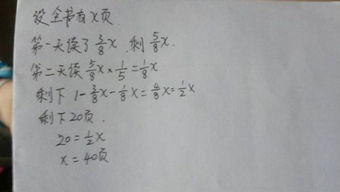 设全书有x页
第一天读了3/8x.剩5/8x.
第二天读5/8x×1/5=1/8x
剩下1-3/8x-1/8x=4/8x=1/2x
剩下20页.
20=1/2x
x=40页